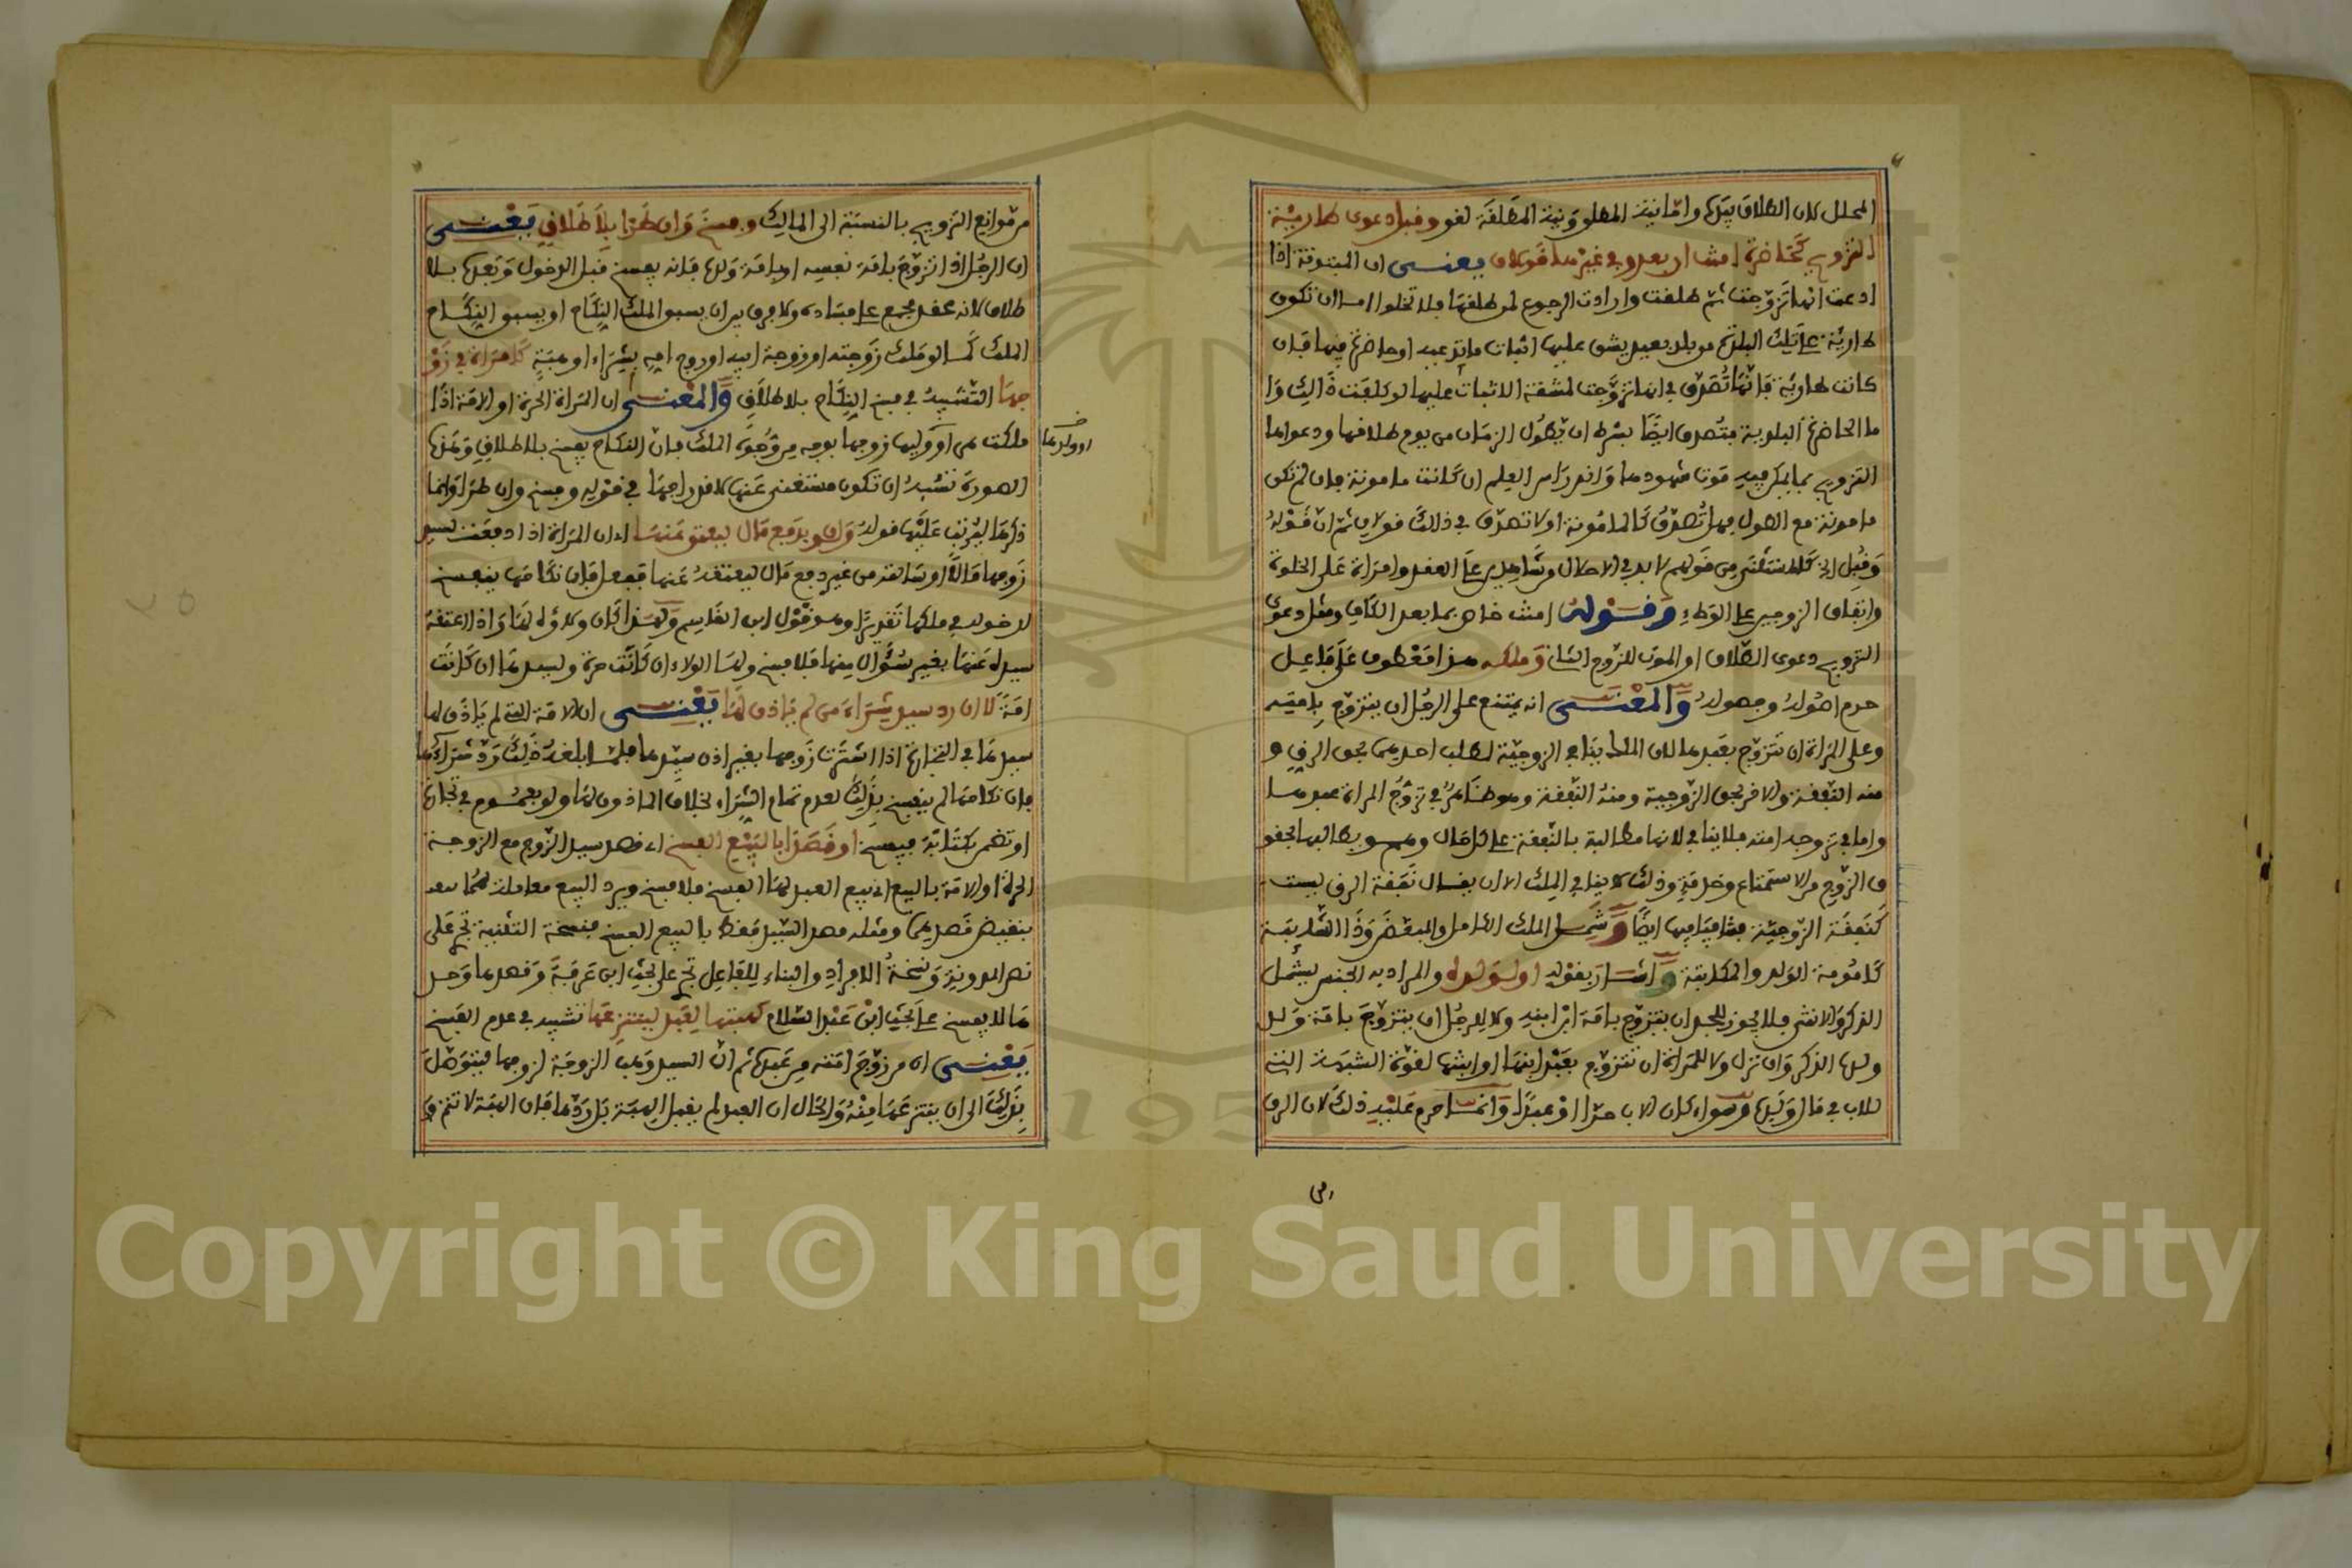 المحلل لان الطلاق بيدها واما نية المطلق ونية المطلقة لغو وقبل دعوى طارية
التزويج كحاضرة امنت ان بعد وفي غيرها قولان يعنى ان المبتوتة اذا
ادعت انها تزوجت ثم طلقت وارادت الرجوع لمن طلقها فلا تخلوا اما ان تكون
طارية على تلك البلدة من بلد بعيد يشق عليها اثبات ما تدعيه او حاضرة فيها فان
كانت طارية فانها تصدق في انها تزوجت لمشقة الاثبات عليها لو كلفت ذالك وا
ما الحاضرة البلدية فتصدق ايضا بشرط ان يطول الزمان من يوم طلاقها ودعواها
التزويج بما يمكن فيه موت شهودها واندراس العلم ان كانت مامونة فان لم تكن
مامونة مع الطول فهل تصدق كالمامونة او لا تصدق في ذلك قولان ثم ان قوله
وقبل الخ كالمستثنى من قولهم لا بد في الاحلال من شاهدين على العقد وامراة على الخلوة
واتفاق الزوجين على الوطء وقوله امنت خاص بما بعد الكاف ومثل دعوى
التزويج دعوى الطلاق او الموت للزوج الثانى وملكه هذا معطوف على فاعل
حرم اصوله وفصوله والمعنى انه يمتنع على الرجل ان يتزوج بامته
وعلى المراة ان تتزوج بعبدها لان الملك ينافي الزوجية لطلب احدهما بحق الرق و
منه النفقة والاخر بحق الزوجية ومنه النفقة وهو ظاهر في تزوج المراة عبدها
واما في تزوجه امته فلا ينافي لانها مطالبة بالنفقة على كل حال وهو يطالبها بحقو
ق الزوج من الاستمتاع وخدمة وذلك لا ينافي الملك الا ان يقال نفقة الرق ليست
كنفقة الزوجية فتنافيا فيها ايضا وشمل الملك الكامل والمبعض وذا الشايبة
كامومة الولد والمكاتبة واشار بقوله او لولده والمراد به الجنس ليشمل
الذكر والانثى فلا يجوز للجد ان يتزوج بامة ابن ابنه ولا للرجل ان يتزوج بامة ولد
ولدها الذكر وان نزل ولا للمراة ان تتزوج بعبد ابنها او ابنتها لقوة الشبهة التي
للاب في مال ولدها وسواء كان الاب حرا او عبدا وانما حرم عليه ذلك لان الرق
من موانع التزويج بالنسبة الى المالك وفسخ وان طرا بلا طلاق يعنى
ان الرجل اذا تزوج بامة نفسه او بامة ولده فانه يفسخ قبل الدخول وبعده بلا
طلاق لانه عقد مجمع على فساده ولا فرق بين ان يسبق الملك النكاح او يسبق النكاح
الملك كما لو ملك زوجته او زوجة ابيه او زوج امه بشراء او هبة كامراة في زو
جها التشبيه في فسخ النكاح بلا طلاق والمعنى ان المراة الحرة او الامة اذا
ملكت هي او ولدها زوجها بوجه من وجوه الملك فان النكاح يفسخ بلا طلاق وهذه
او ولدها
الصورة تشبه ان تكون مستغنى عنها لاندراجها في قوله وفسخ وان طرا وانما
ذكرها ليرتب عليها قوله ولو بدفع مال ليعتق عنها اي ان المراة اذا دفعت لسيد
زوجها مالا او سالته من غير دفع مال ليعتقه عنها ففعل فان نكاحها ينفسخ
لدخوله في ملكها تقديرا وهو قول ابن القاسم ولهذا كان ولاؤه لها واذا اعتقه
سيده عنها بغير سؤال منها فلا فسخ ولها الولاء ان كانت حرة ولسيدها ان كانت
امة لا ان رد سيد شراء من لم ياذن لها يعنى ان الامة التي لم ياذن لها
سيدها في التجارة اذا اشترت زوجها بغير اذن سيدها فلما بلغه ذلك رد شراءها
فان نكاحها لم ينفسخ بذلك لعدم تمام الشراء بخلاف الماذون لها ولو بعموم في تجارة
او تضمن بكتابة فيفسخ او قصدا بالبيع الفسخ اي قصد سيد الزوج مع الزوجة
الحرة او الامة بالبيع اي بيع العبد لها الفسخ فلا فسخ ويرد البيع معاملة لهما
بنقيض قصدهما ومثله قصد السيد فقط بالبيع الفسخ فنسخة التثنية تجري على
نص المدونة ونسخة الافراد والبناء للفاعل تجري على بحث ابن عرفة وقصدها وحد
ها لا يفسخ على بحث ابن عبد السلام كهبتها لعبد لينتزعها تشبيه في عدم الفسخ
يعنى ان من زوج امته من عبده ثم ان السيد وهب الزوجة لزوجها ليتوصل
بذلك الى ان ينتزعها منه والحال ان العبد لم يقبل الهبة بل ردها فان الهبة لا تتم و